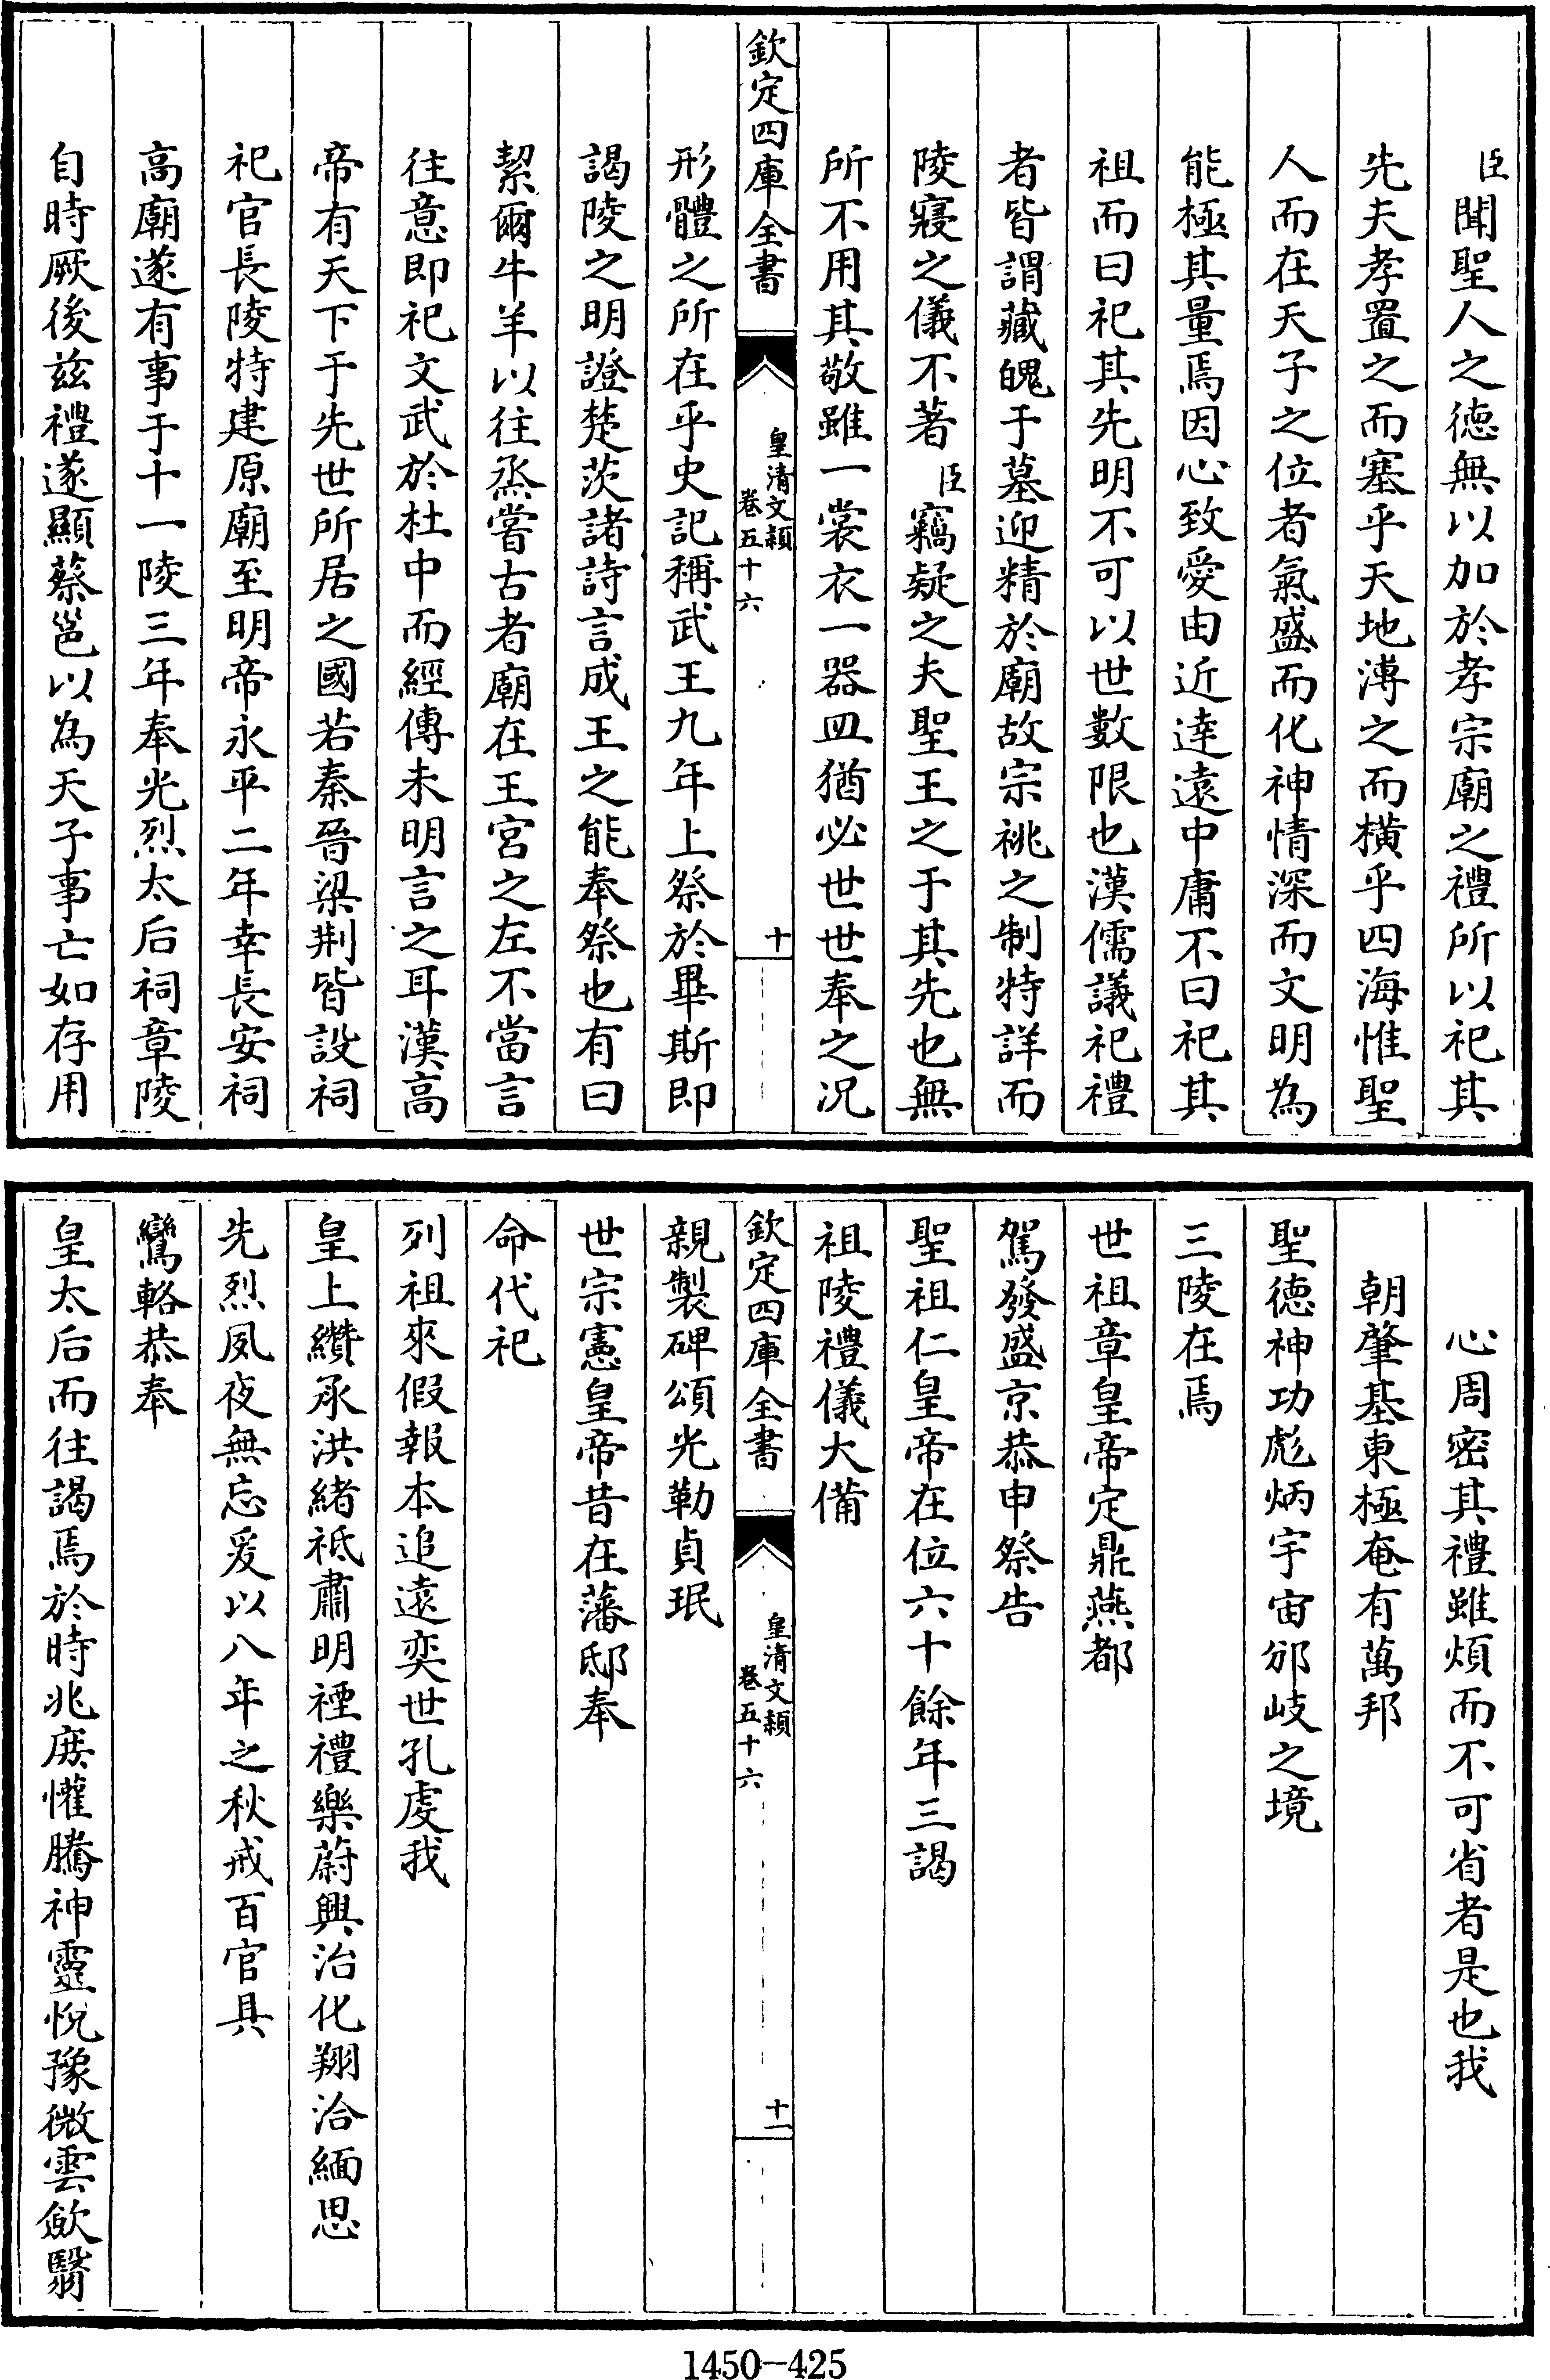 臣聞聖人之德無以加於孝宗廟之禮所以祀其
先夫孝置之而塞乎天地溥之而橫乎四海惟聖
人而在天子之位者氣盛而化神情深而文明為
能極其量焉因心致愛由近達遠中庸不曰祀其
祖而曰祀其先明不可以世數限也漢儒議祀禮
者皆謂藏魄于墓迎精於廟故宗祧之制特詳而
陵寢之儀不著臣竊疑之夫聖王之于其先也無
所不用其敬雖一裳衣一器皿猶必世世奉之况
欽定四庫全書
皇清文穎
卷五十六
十
形體之所在乎史記稱武王九年上祭於畢斯即
謁陵之明證楚茨諸詩言成王之能奉祭也有曰
絜爾牛羊以往烝嘗古者廟在王宫之左不當言
往意即祀文武於杜中而經傳未明言之耳漢高
帝有天下于先世所居之國若秦晉梁荆皆設祠
祀官長陵特建原廟至明帝永平二年幸長安祠
高廟遂有事于十一陵三年奉光烈太后祠章陵
自時厥後兹禮遂顯蔡邕以為天子事亡如存用
心周密其禮雖煩而不可省者是也我
朝肇基東極奄有萬邦
聖德神功彪炳宇宙邠岐之境
三陵在焉
世祖章皇帝定鼎燕都
駕發盛京恭申祭告
聖祖仁皇帝在位六十餘年三謁
祖陵禮儀大備
欽定四庫全書
皇清文穎
卷五十六
十一
親製碑頌光勒貞珉
世宗憲皇帝昔在藩邸奉
命代祀
列祖來假報本追遠奕世孔虔我
皇上纘承洪緒祗肅明禋禮樂蔚興治化翔洽緬思
先烈夙夜無忘爰以八年之秋戒百官具
鸞輅恭奉
皇太后而往謁焉於時兆庶懽騰神靈悅豫微雲歛翳
1450-425